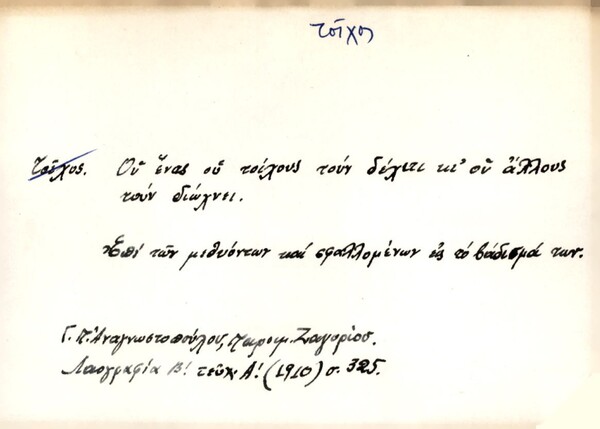 τοῖχος
Τοῖχος. Οὗ ἕνας οὗ τοίχους τοὺν δέχιτι κι' οὗ ἄλλους
τοὺν διώχνει.
Ἐπὶ τῶν μεθυόντων καὶ σφαλλομένων εἰς τὸ βάδισμά των.
Γ. Π. Ἀναγνωστοπούλου, Παροιμ. Ζαγορίου.
Λαογραφία Β! τεῦχ. Α! (1910) σ. 325.